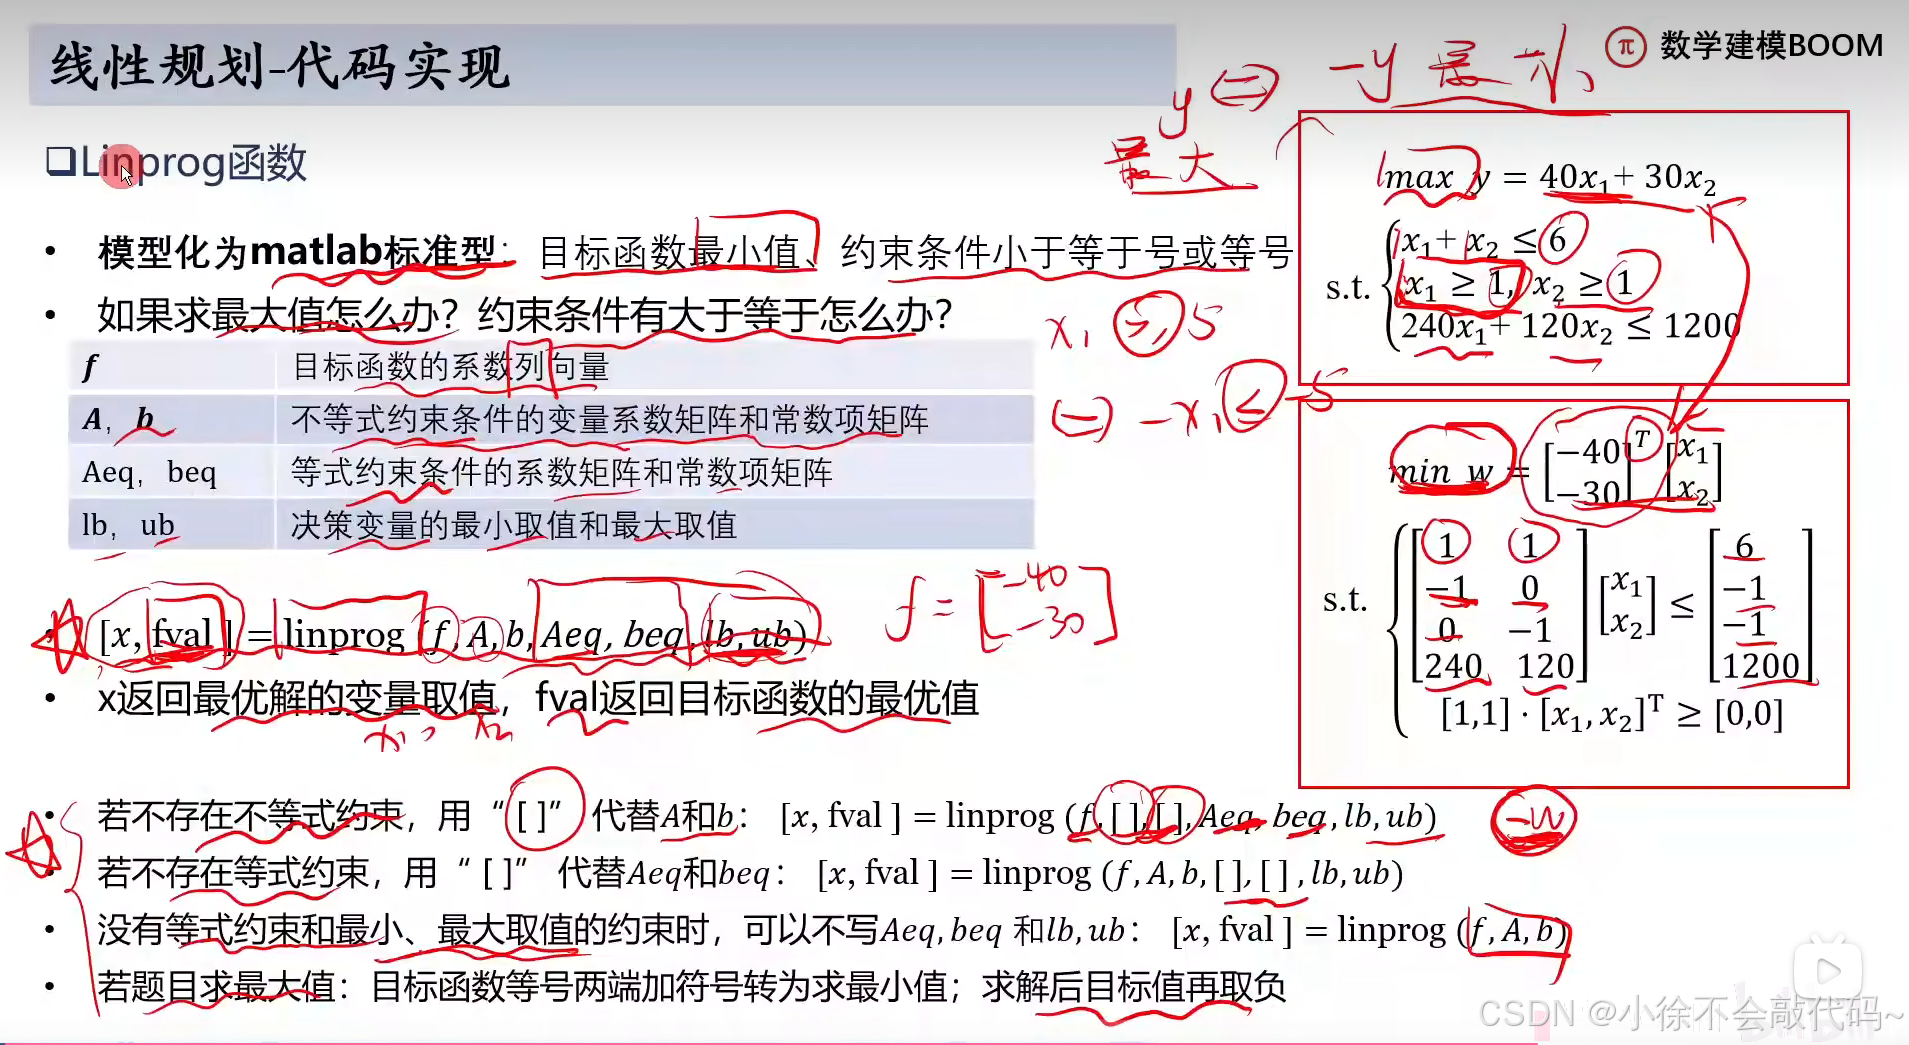 线性规划-代码实现
数学建模BOOM
y ⇔ -y 最小
最大
❑Linprog函数
• 模型化为matlab标准型：目标函数最小值、约束条件小于等于号或等号
• 如果求最大值怎么办？约束条件有大于等于怎么办？
f 目标函数的系数列向量
A，b 不等式约束条件的变量系数矩阵和常数项矩阵
Aeq，beq 等式约束条件的系数矩阵和常数项矩阵
lb，ub 决策变量的最小取值和最大取值
x₁ ≥ 5
⇔ -x₁ ≤ -5
max y = 40x₁+ 30x₂
s.t. { x₁+ x₂ ≤ 6
x₁ ≥ 1, x₂ ≥ 1
240x₁+ 120x₂ ≤ 1200
min w = [−40 −30]ᵀ [x₁ x₂]
s.t. { [1 1
−1 0
0 −1
240 120] [x₁ x₂] ≤ [6 −1 −1 1200]
[1,1] · [x₁, x₂]ᵀ ≥ [0,0]
[x, fval ] = linprog (f, A, b, Aeq, beq, lb, ub)
f = [-40 -30]
• x返回最优解的变量取值，fval返回目标函数的最优值
x₁, x₂
• 若不存在不等式约束，用“[ ]” 代替A和b： [x, fval ] = linprog (f, [ ], [ ], Aeq, beq, lb, ub)
-w
• 若不存在等式约束，用“ [ ]” 代替Aeq和beq： [x, fval ] = linprog (f, A, b, [ ], [ ] , lb, ub)
• 没有等式约束和最小、最大取值的约束时，可以不写Aeq, beq 和lb, ub： [x, fval ] = linprog (f, A, b)
• 若题目求最大值：目标函数等号两端加符号转为求最小值；求解后目标值再取负
CSDN @小徐不会敲代码~